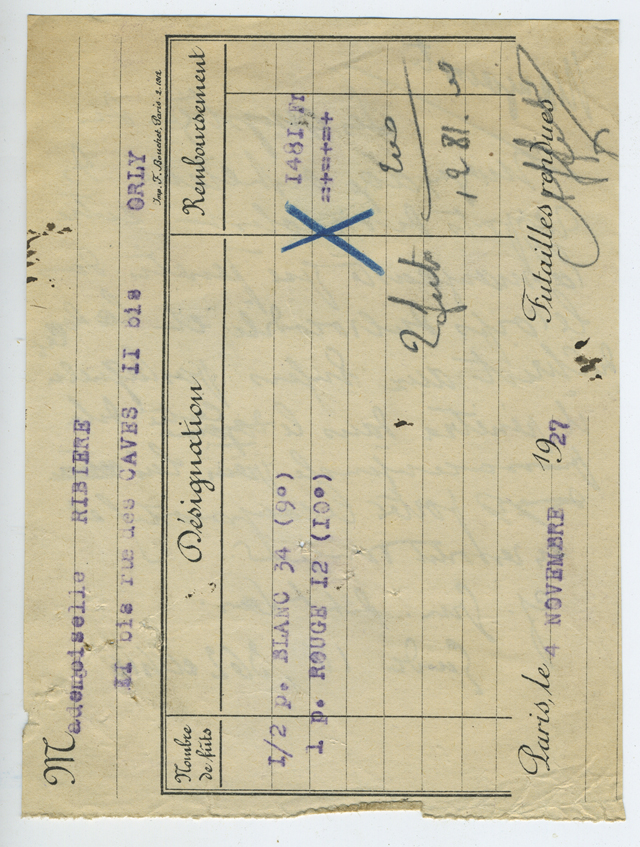 Mademoiselle RIBIERE
II bis rue des CAVES II bis ORLY
Imp. F. Bouchet, Paris
Nombre de fûts
Désignation
Remboursement
I/2 p. BLANC 34 (9°)
1 p. ROUGE 12 (10°)
1481 Fr
=+=+=+=+
2 fûts 200
1281.
Paris, le 4 NOVEMBRE 1927
Futailles rendues